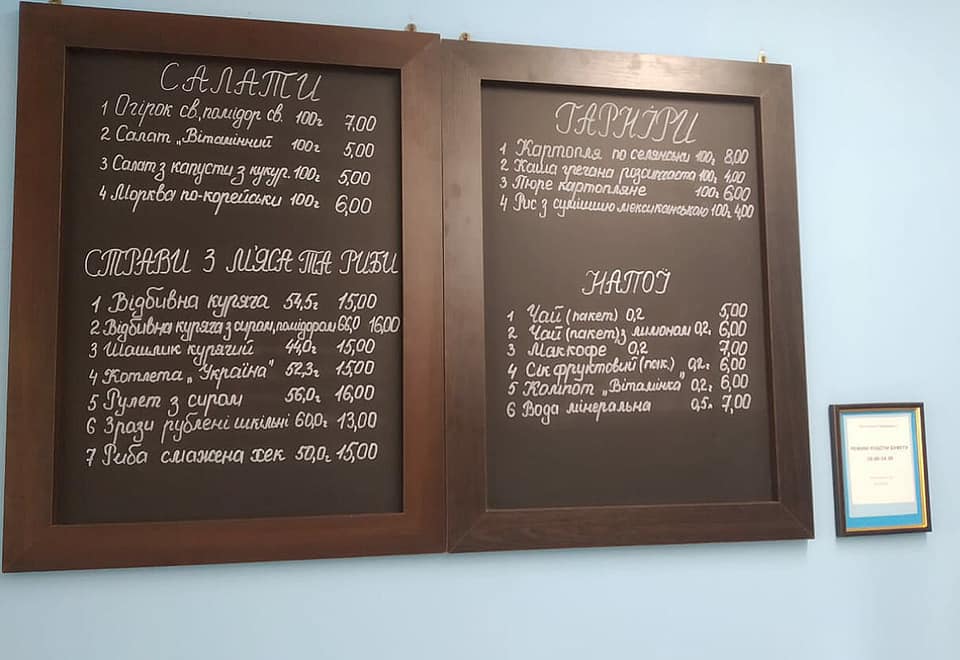 САЛАТИ
1 Огірок св., помідор св. 100г 7,00
2 Салат „Вітамінний 100г 5,00
3 Салат з капусти з кукур. 100г 5,00
4 Морква по-корейськи 100г 6,00
СТРАВИ З М'ЯСА ТА РИБИ
1 Відбивна куряча 54,5г 15,00
2 Відбивна куряча з сиром, помідором 66,0 16,00
3 Шашлик курячий 44,0г 15,00
4 Котлета „Україна" 52,3г 15,00
5 Рулет з сиром 56,0г 16,00
6 Зрази рублені шкільні 60,0г 13,00
7 Риба смажена хек 50,0г 15,00
ГАРНІРИ
1 Картопля по селянськи 100г 8,00
2 Каша гречана розсипчаста 100г 4,00
3 Пюре картопляне 100г 6,00
4 Рис з сумішшю мексиканською 100г 4,00
НАПОЇ
1 Чай (пакет) 0,2 5,00
2 Чай (пакет) з лимоном 0,2 6,00
3 Маккофе 0,2 7,00
4 Сік фруктовий (пак.) 0,2г 6,00
5 Компот „Вітамінка" 0,2г 6,00
6 Вода мінеральна 0,5л 7,00
РЕЖИМ РОБОТИ БУФЕТУ